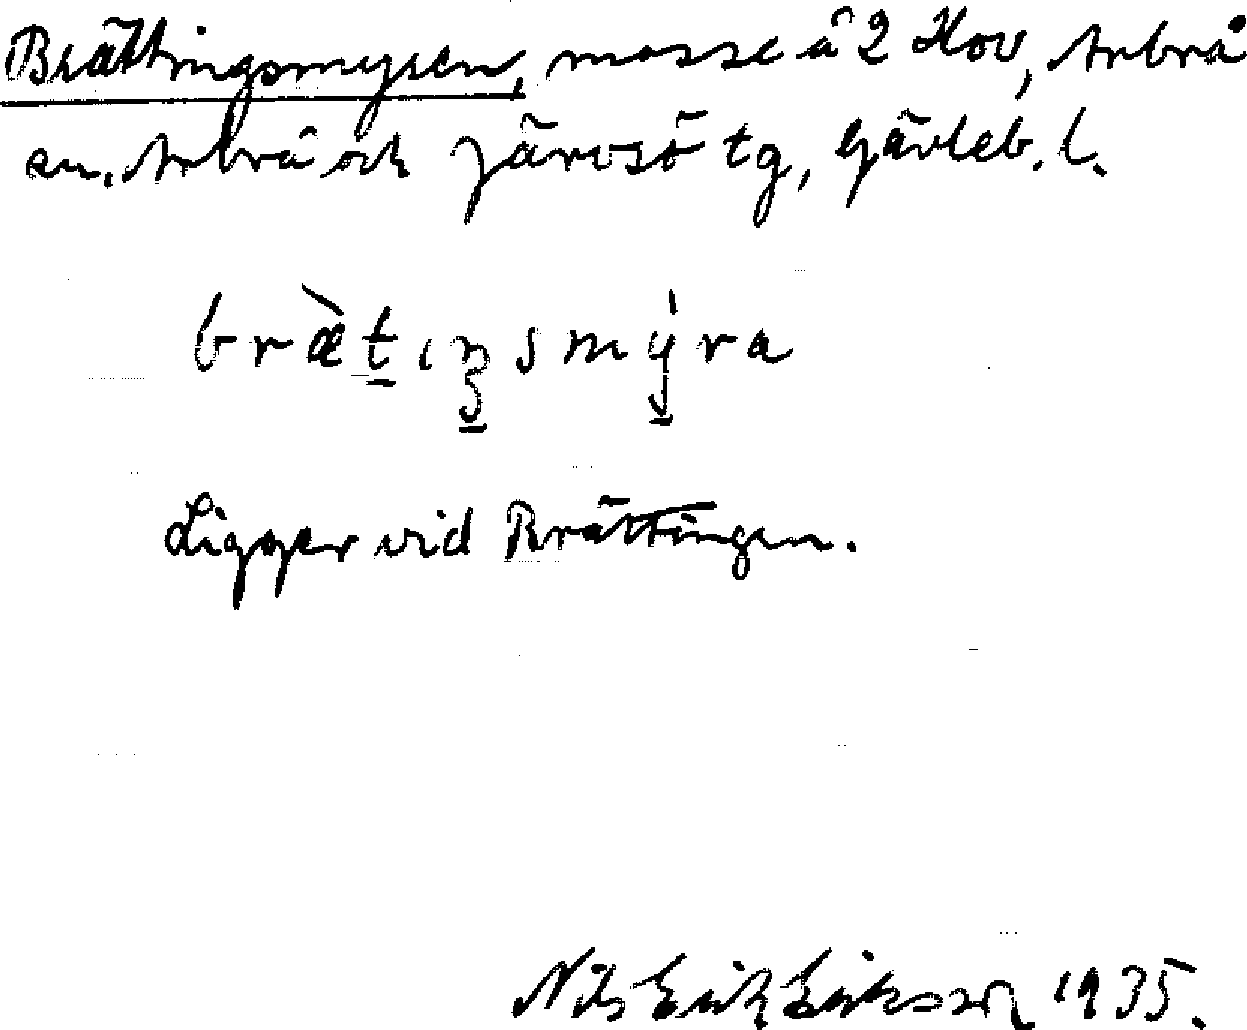 Brättingsmyren, mosse å 2 Hov, Arbrå
sn. Arbrå och Järvsö tg, Gävleb. l.
bræ̀tıŋsmýra
Ligger vid Brättingen.
Nils Erik Eriksson 1935.